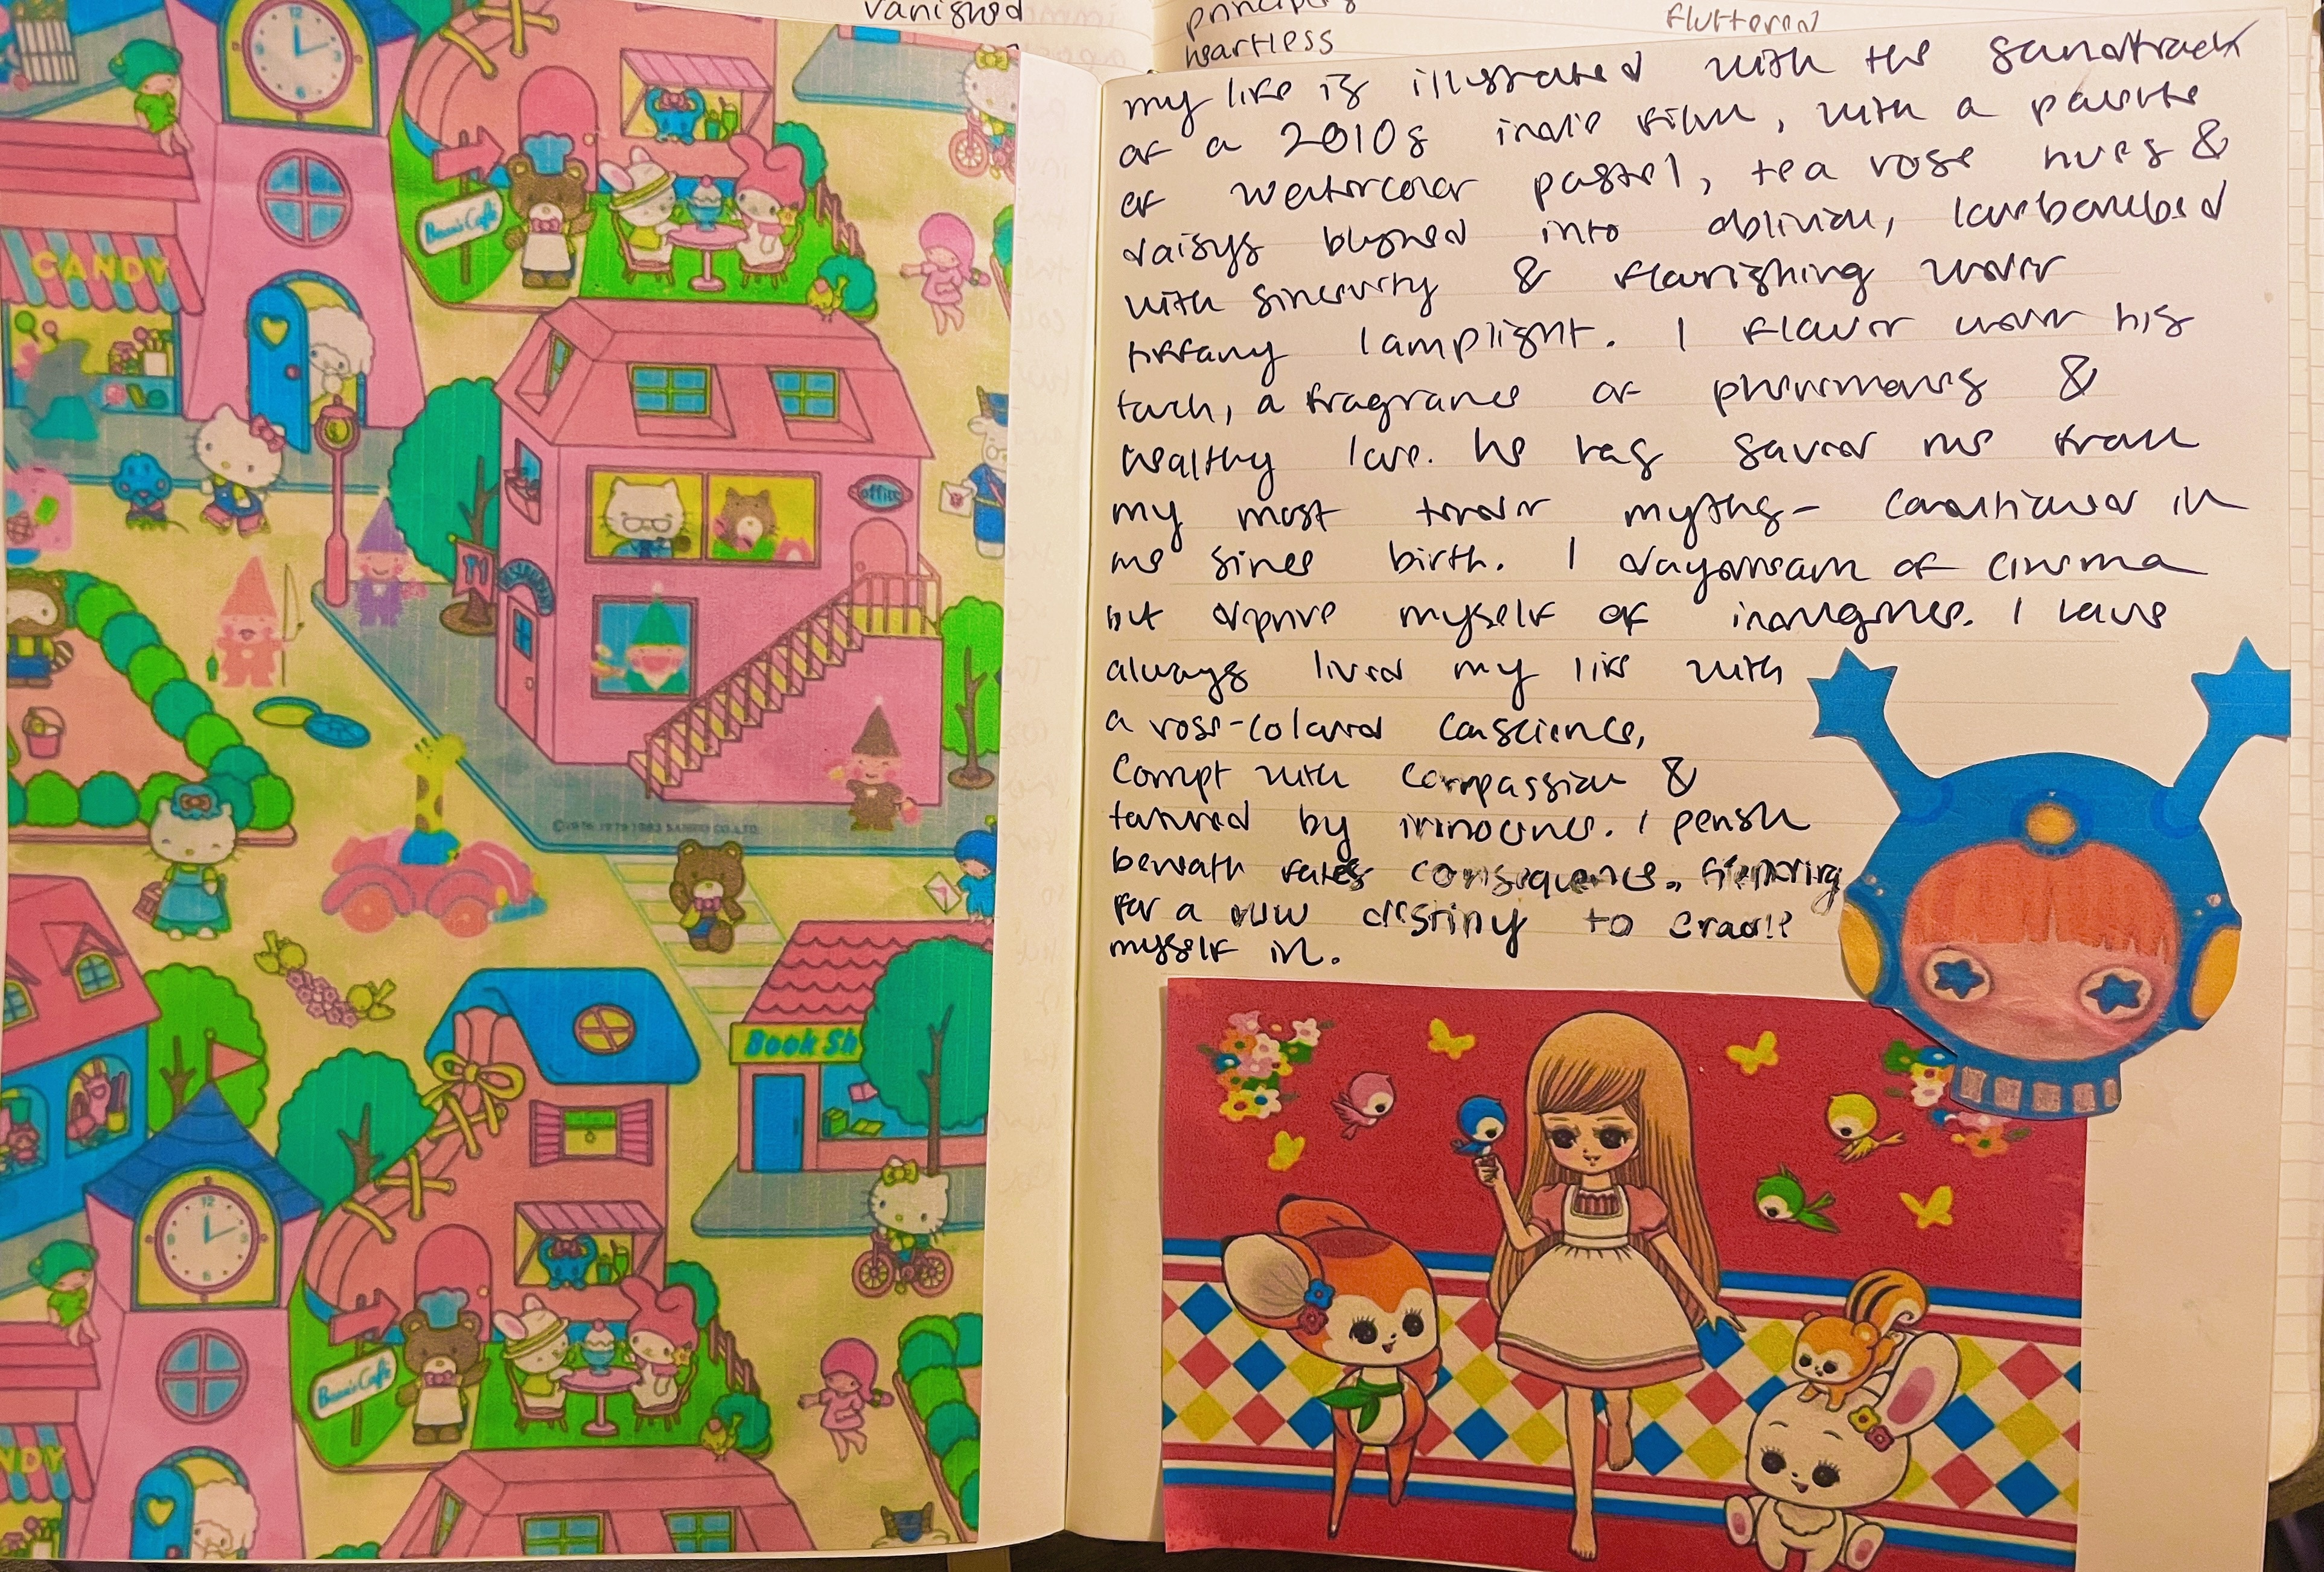 vanished
heartless
fluttered
my life is illustrated with the soundtrack
of a 2010s indie film, with a palette
of watercolor pastel, tea rose hues &
daisys blurred into oblivion, lovebombed
with sincerity & flourishing under
tiffany lamplight. I flower under his
touch, a fragrance of pheromones &
healthy love. he has saved me from
my most tender myths- conditioned in
me since birth. I daydream of cinema
but deprive myself of indulgence. I have
always lived my life with
a rose-colored conscience,
corrupt with compassion &
tainted by innocence. I perish
beneath fates consequence,
for a new destiny to cradle
myself in.
CANDY
Bear's Café
office
RESTAURANT
©1976, 1979, 1983 SANRIO CO., LTD.
Book Sh
12
3
6
9
Bear's Café
NDY